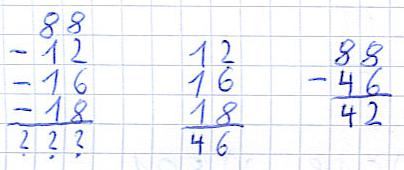 88
- 12
- 16
- 18
? ? ?
12
16
18
46
88
- 46
42